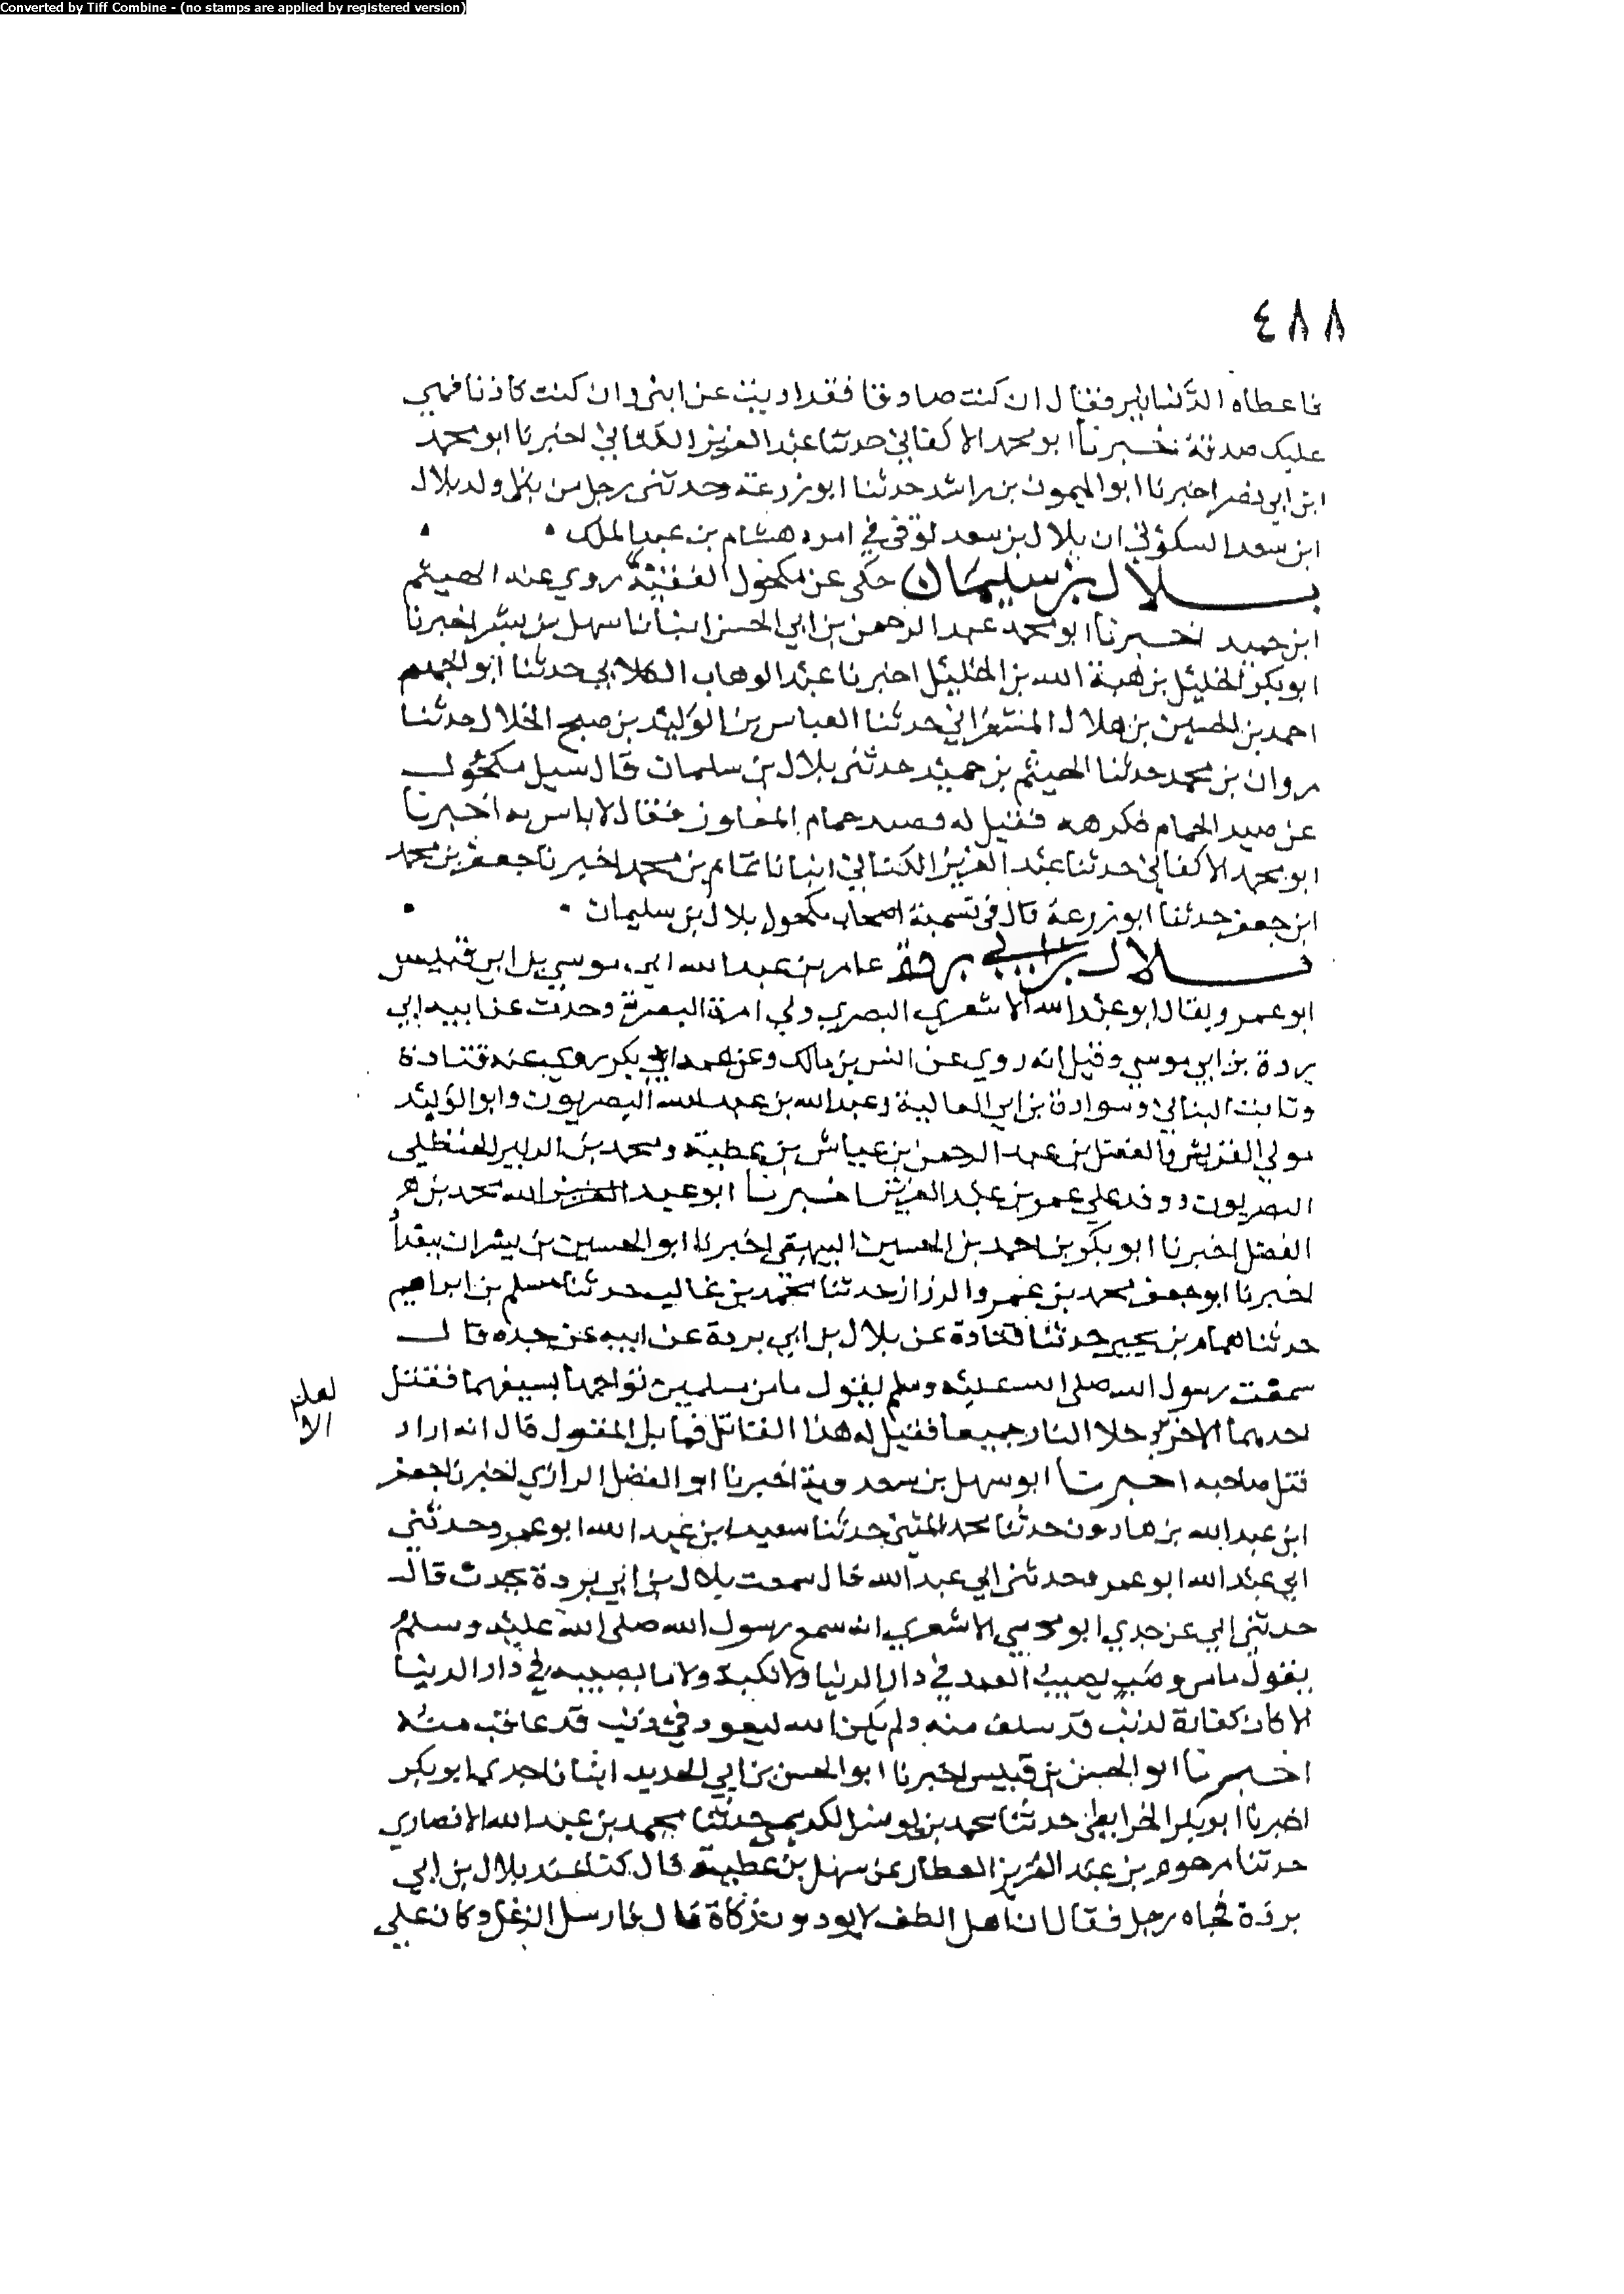 Converted by Tiff Combine - (no stamps are applied by registered version)
٤٨٨
فاعطاه الدنانير فقال ان كنت صادقا فقد اديت عن ابني وان كنت كاذبا فهي
عليك صدقة اخبرنا ابو محمد الاكفاني حدثنا عبد العزيز الكتاني اخبرنا ابو محمد
ابن ابي نصر اخبرنا ابو الميمون بن راشد حدثنا ابو زرعة وحدثني رجل من ولد بلال
ابن سعد السكوني ان بلال بن سعد توفي في امرة هشام بن عبد الملك
بلال بن سليمان حكى عن مكحول الفقيه روي عنه الهيثم
ابن حميد اخبرنا ابو محمد عبد الرحمن بن ابي الحسن انبانا سهل بن بشر اخبرنا
ابو بكر الخليل بن هبة الله بن الخليل اخبرنا عبد الوهاب الكلابي حدثنا ابو الجهم
احمد بن الحسين بن هلال المشغراني حدثنا العباس بن الوليد بن صبح الخلال حدثنا
مروان بن محمد حدثنا الهيثم بن حميد حدثني بلال بن سليمان قال سيل مكحول
عن صيد الحمام فكرهه فقيل له فصيد حمام المفاوز فقال لا باس به اخبرنا
ابو محمد الاكفاني حدثنا عبد العزيز الكتاني انبانا تمام بن محمد اخبرنا جعفر بن محمد
ابن جعفر حدثنا ابو زرعة قال في تسمية اصحاب مكحول بلال بن سليمان
بلال بن ابي بردة عامر بن عبد الله ابي موسي بن ابي قيس
ابو عمرو يقال ابو عبد الله الاشعري البصري ولي امرة البصرة وحدث عن ابيه ابي
بردة بن ابي موسي وقيل انه روي عن انس بن مالك وعن عمه ابي بكر روي عنه قتادة
وثابت البناني وسوادة بن ابي العالية وعبد الله بن عبد الله البصريون وابو الوليد
مولي القريش والفضل بن عبد الرحمن بن عياش بن عطية ومحمد بن الزبير الحنظلي
البصريون ووفد علي عمر بن عبد العزيز اخبرنا ابو عبد الله محمد بن
الفضل اخبرنا ابو بكر بن احمد بن الحسين البيهقي اخبرنا ابو الحسين بن بشران ببغدا
اخبرنا ابو جعفر محمد بن عمرو الرزاز حدثنا محمد بن غالب حدثنا مسلم بن ابراهيم
حدثنا همام بن يحيي حدثنا قتادة عن بلال بن ابي بردة عن ابيه عن جده قال
سمعت رسول الله صلى الله عليه وسلم يقول ما من مسلمين تواجها بسيفهما فقتل
احدهما الاخر دخلا النار جميعا فقيل له هذا القاتل فما بال المقتول قال انه اراد
لعله
الا
قتل صاحبه اخبرنا ابو سهل بن سعدويه اخبرنا ابو الفضل الرازي اخبرنا جعفر
ابن عبد الله بن هارون حدثنا محمد المثنى حدثنا سعيد ابن عبد الله ابو عمر وحدثني
ابي عبد الله ابو عمر وحدثني ابي عبد الله قال سمعت بلال بن ابي بردة يحدث قال
حدثني ابي عن جدي ابو موسي الاشعري انه سمع رسول الله صلى الله عليه وسلم
يقول ما من وصب يصيب العبد في دار الدنيا ولا نكبة ولا ما يصيبه في دار الدنيا
الا كان كفارة لذنب قد سلف منه ولم يكن الله ليعود في ذنب قد عاقب منه
اخبرنا ابو الحسن بن قبيس اخبرنا ابو الحسن بن ابي الحديد انبانا جدي ابو بكر
اخبرنا ابو بكر الخرايطي حدثنا محمد بن يونس الكديمي حدثنا محمد بن عبد الله الانصاري
حدثنا مرحوم بن عبد العزيز العطار عن سهل بن عطية قال كنت عند بلال بن ابي
بردة فجاه رجل فقال ان اهل الطف لا يودون زكاة قال فارسل الرجل وكان علي